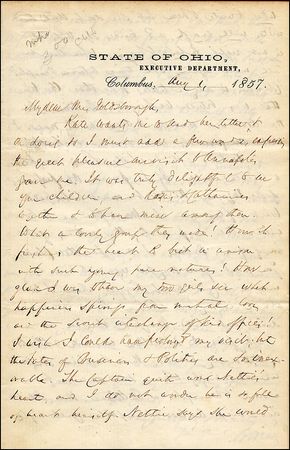 STATE OF OHIO,
EXECUTIVE DEPARTMENT,
Columbus, Aug 1, 1857.
My dear Mrs. Goldsborough,
Kate wants me to send her letter &
in doing so I must add a few words, expressing
the great pleasure our visit to Annapolis
gave me. It was truly delightful to see
your children and
together & to be once more among them.
What a lovely group they made! How it
the heart to be in union
with such young, pure natures! How
glad I was to hear my two girls see what
happiness springs from mutual love
and the interchange of kind offices!
I wish I could have prolonged my visit, but
the duties of Business & Politics are inexorable.
The Captain quite won Nettie's
heart, and I do not wonder he is
of heart himself. Nettie says she would